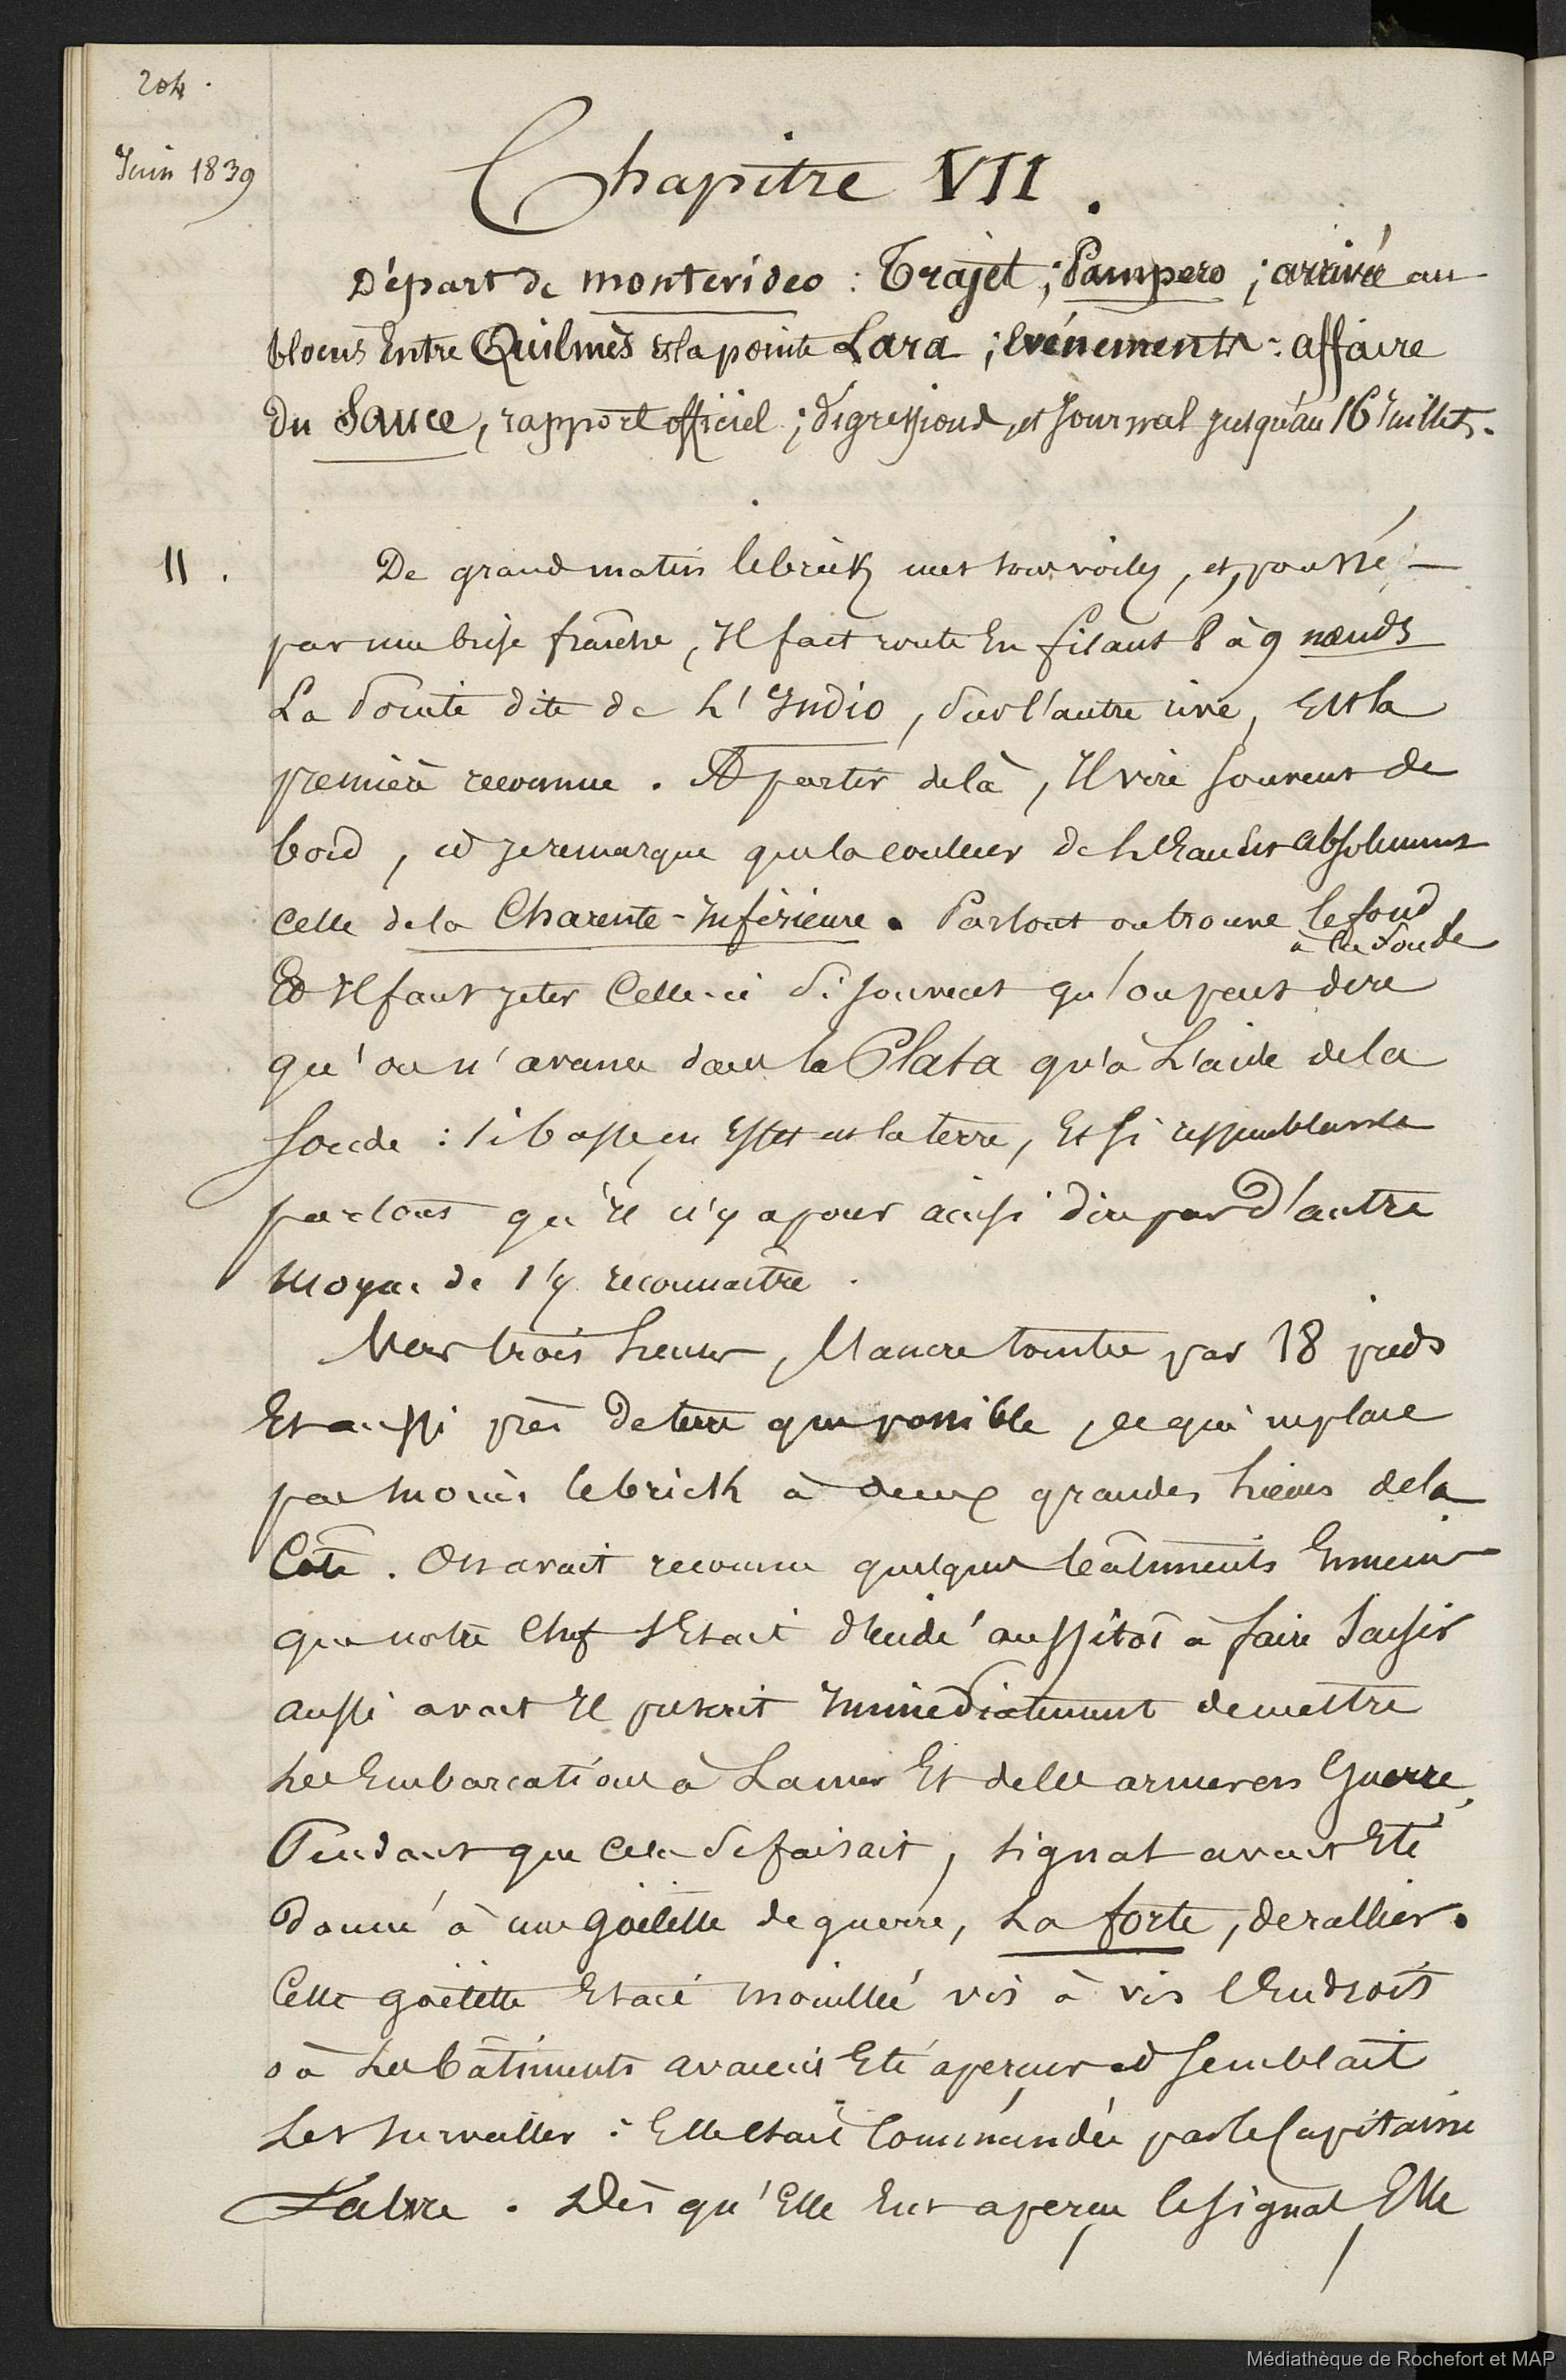 204.
Juin 1839
Chapitre VII.
Départ de Montevideo : Trajet ; Pampero ; arrivée au
blocus Entre Quilmès et la pointe Lara ; Evénements : affaire
du Sauce, rapport officiel ; digressions, et Journal jusqu'au 16 Juillet.
11.
De grand matin le brick met sous voiles, et, poussé
par une brise fraîche, Il fait route En filant 8 à 9 nœuds
La Pointe dite de L'Indio, sur l'autre rive, Est la
première reconnue. A partir de là, Il vire souvent de
bord, et je remarque que la couleur de L'Eau Est absolument
Celle de la Charente-Inférieure. Partout on trouve le fond
à la sonde
Et Il faut jeter Celle-ci si souvent qu'on peut dire
qu'on n'avance dans la Plata qu'à L'aide de la
Sonde : si basse en Effet est la terre, Et si ressemblante
partout qu'il n'y a pour ainsi dire pas d'autre
Moyen de s'y reconnaître.
Vers trois heures, L'ancre tombe par 18 pieds
Et aussi près de terre que possible, ce qui n'place
pas moins le brick à deux grandes Lieues de la
Côte. On avait reconnu quelques bâtiments Ennemis
que notre Chef s'Etait décidé aussitôt à faire Saisir
aussi avait Il prescrit Immédiatement de mettre
Les Embarcations à La mer Et de les armer en Guerre.
Pendant que Cela se faisait, signal avait Eté
Donné à une Goëlette de guerre, La forte, de rallier.
Cette goëlette Etait mouillée vis à vis l'Endroit
où Les bâtiments avaient Eté aperçus et semblait
Les surveiller : Elle était Commandée par le Capitaine
. Dès qu'Elle Eut aperçu le signal Elle
Médiathèque de Rochefort et MAP